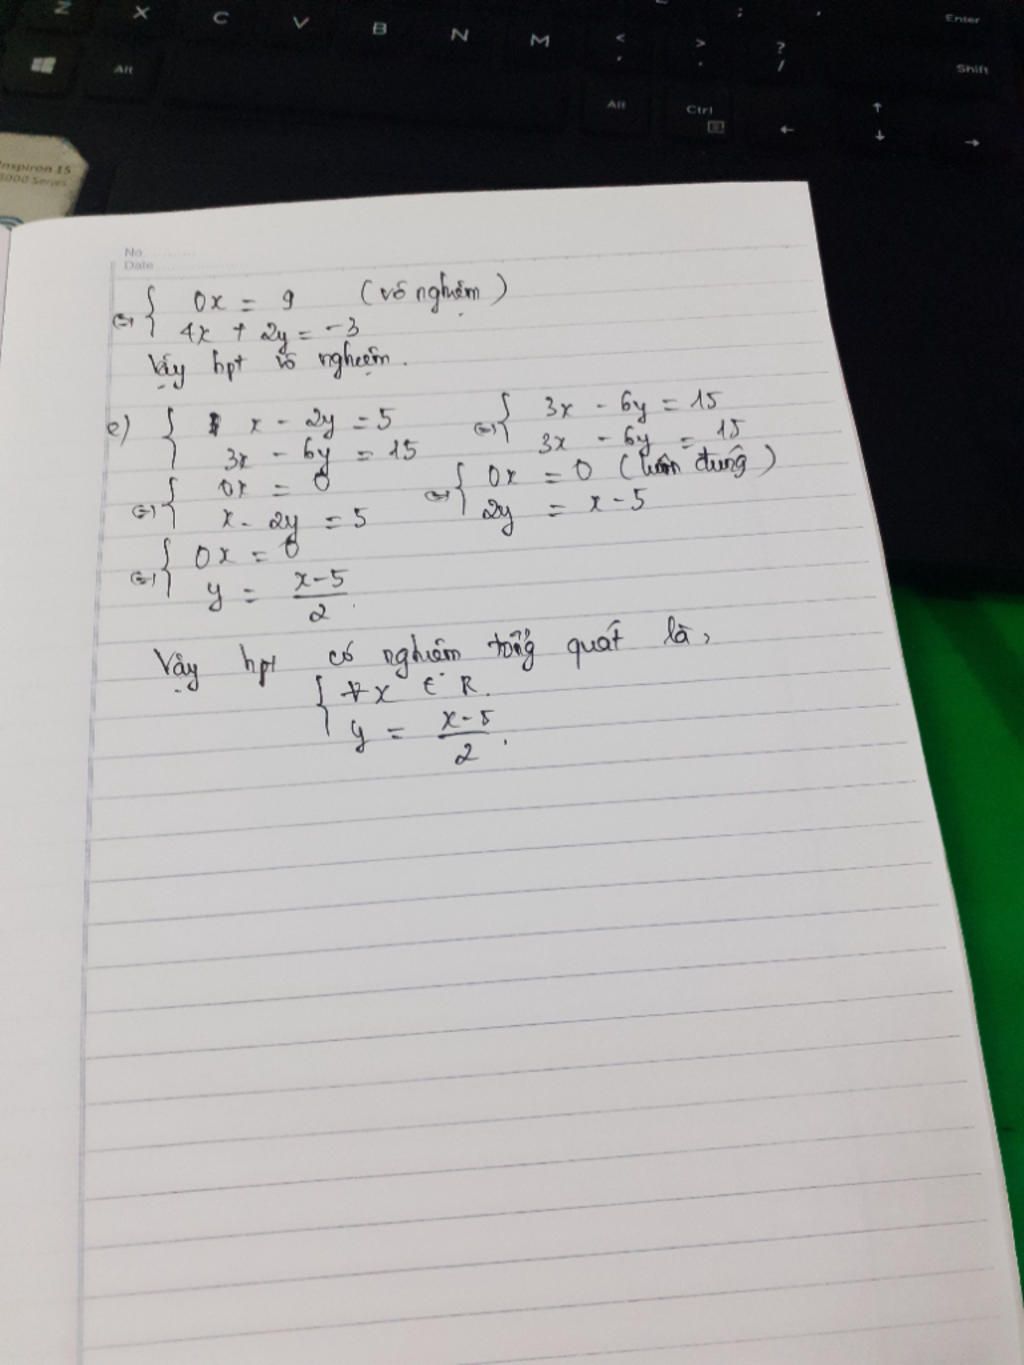 Z X C V B N M < , > . ? / ; . Enter
Alt Alt Ctrl Shift ← ↑ ↓ →
Inspiron 15
3000 Series
No
Date
⇔ { 0x = 9 (vô nghiệm)
4x + 2y = -3
Vậy hpt vô nghiệm.
e) { x - 2y = 5 ⇔ { 3x - 6y = 15
3x - 6y = 15 3x - 6y = 15
⇔ { 0x = 0 ⇔ { 0x = 0 (luôn đúng)
x - 2y = 5 2y = x - 5
⇔ { 0x = 0
y = x-5 / 2.
Vậy hpt có nghiệm tổng quát là,
{ ∀x ∈ R.
y = x-5 / 2.